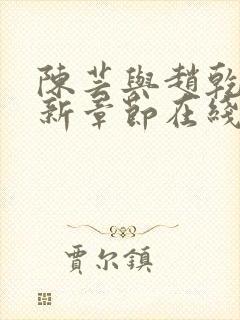 陳芸與趙乾
新章節在綫
賈尔鎮